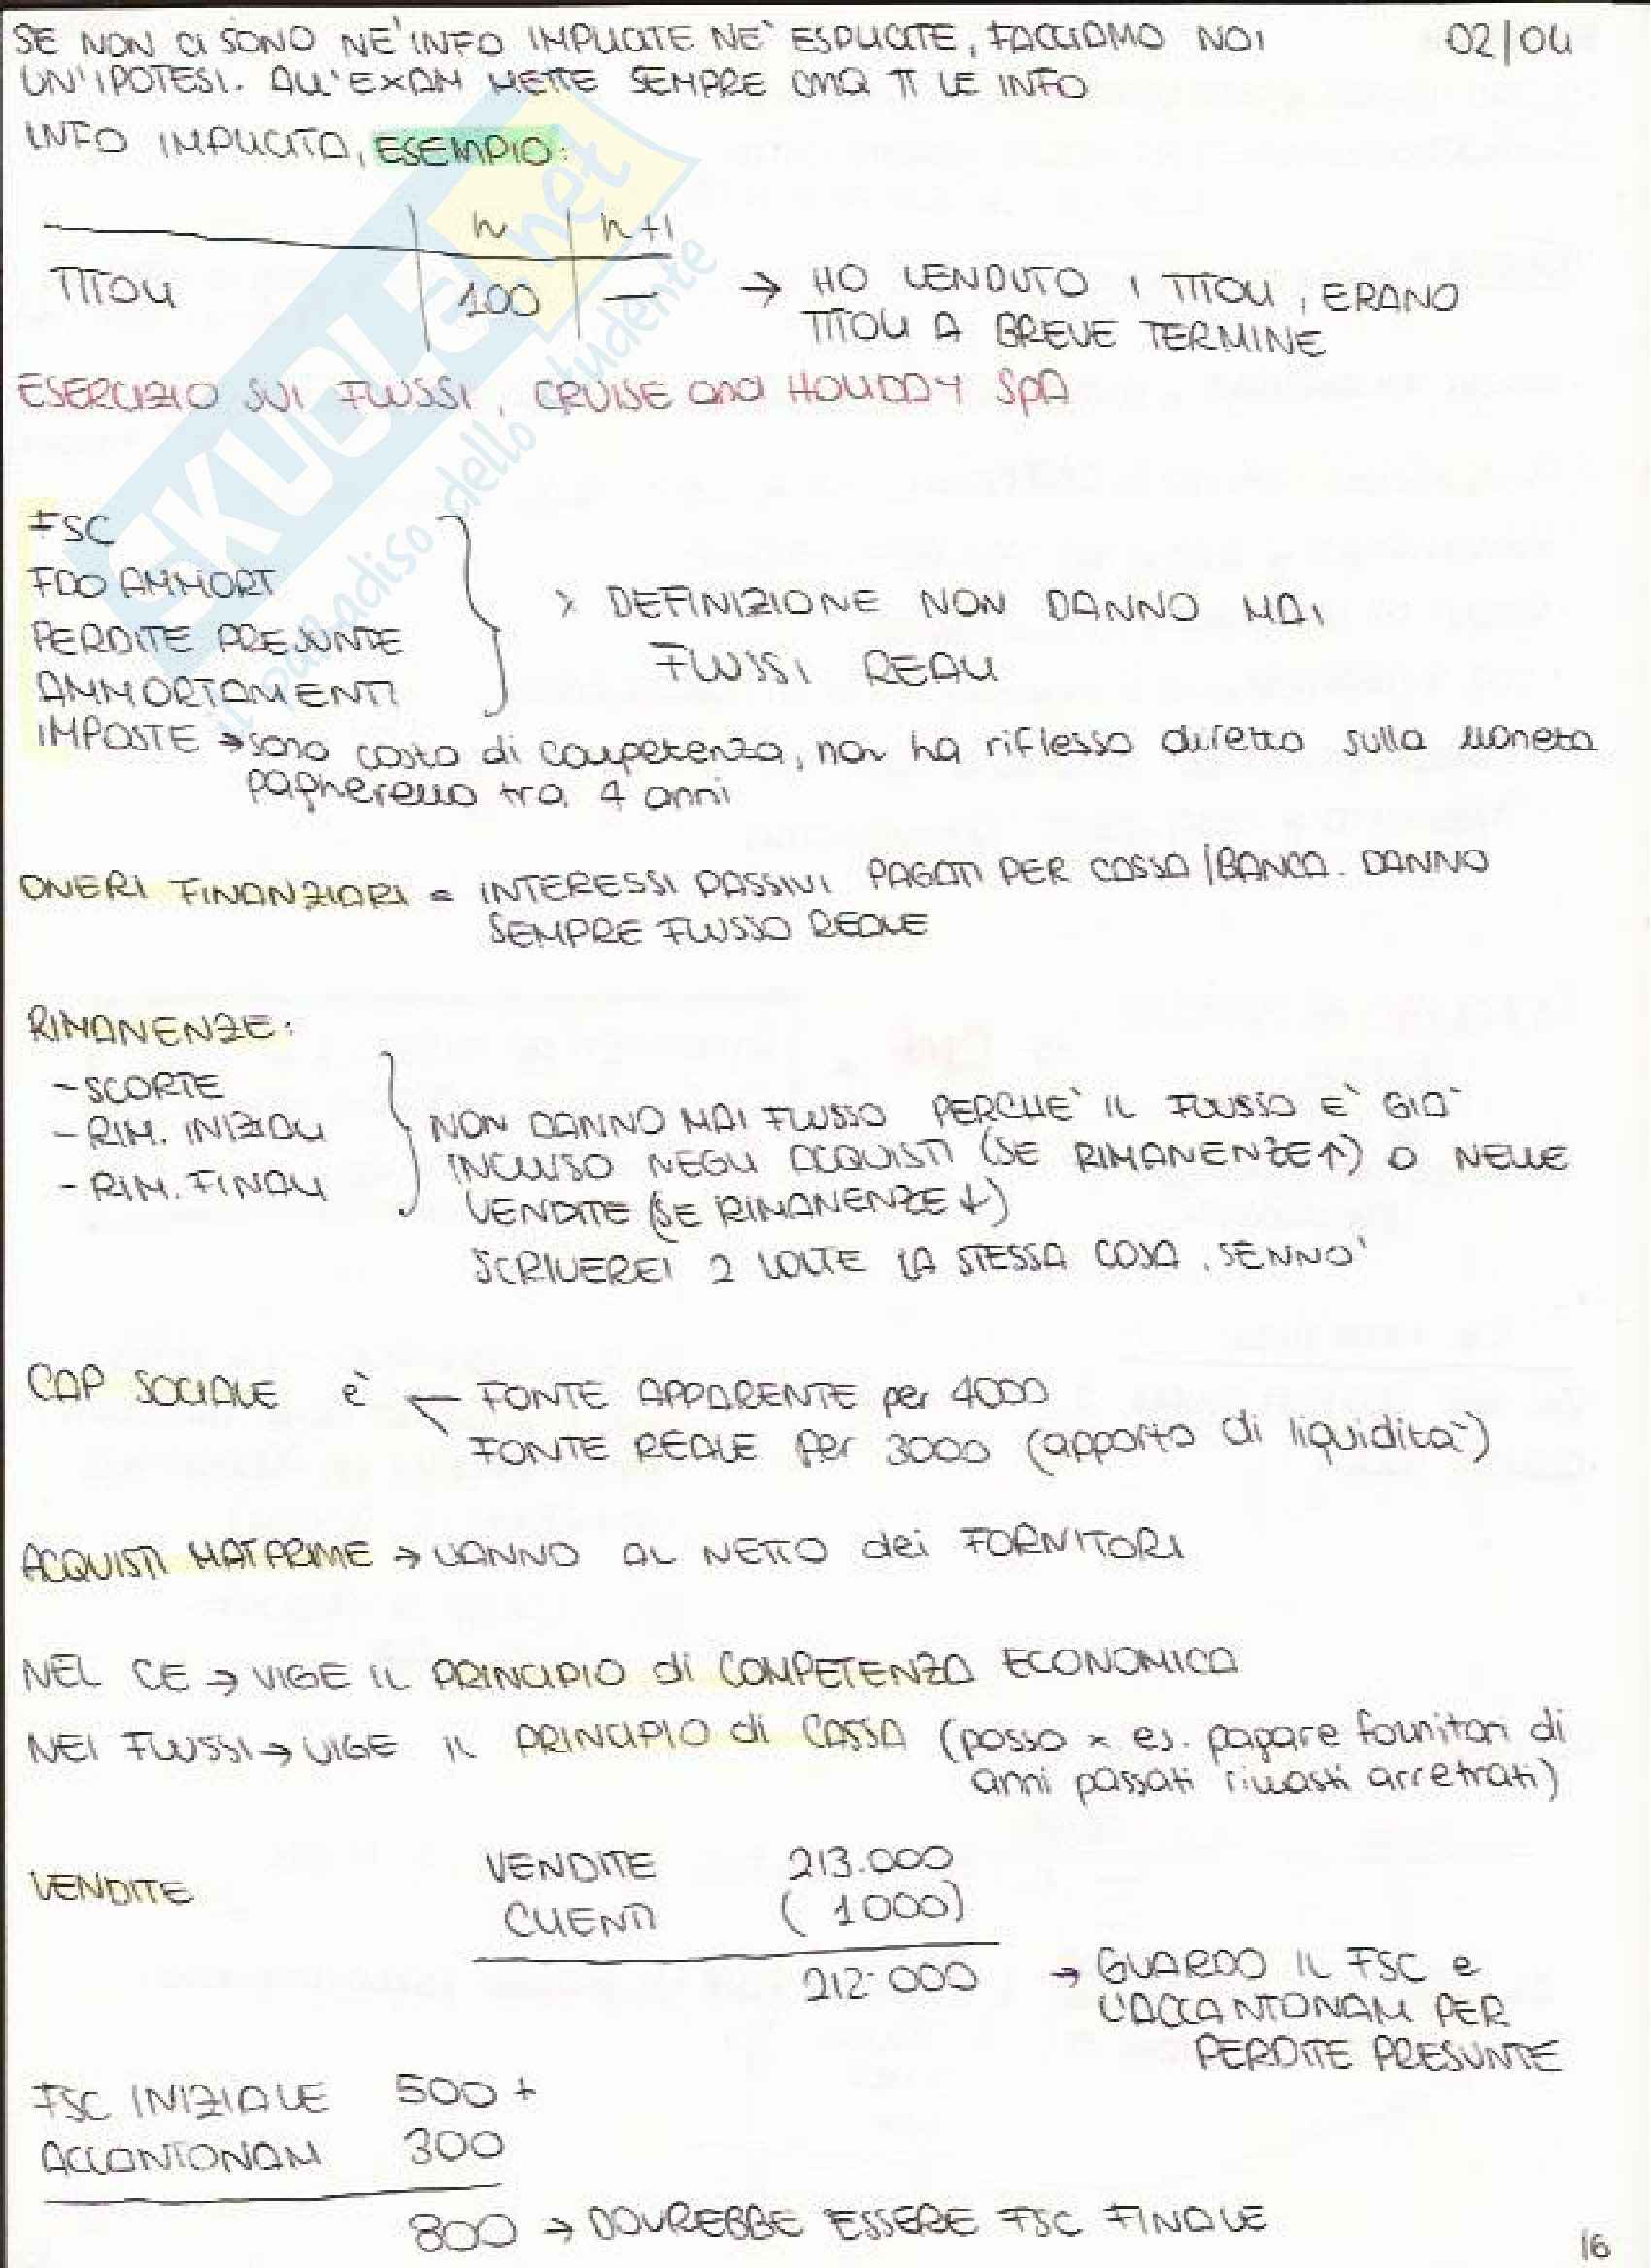 SE NON CI SONO NE' INFO IMPLICITE NE' ESPLICITE, FACCIAMO NOI 02/04
UN'IPOTESI. ALL'EXAM METTE SEMPRE CMQ TT LE INFO
INFO IMPLICITA, ESEMPIO:
n n+1
TITOLI 100 — → HO VENDUTO I TITOLI, ERANO
TITOLI A BREVE TERMINE
ESERCIZIO SUI FLUSSI, CRUISE and HOLIDAY SpA
FSC
FDO AMMORT
PERDITE PRESUNTE
AMMORTAMENTI
> DEFINIZIONE NON DANNO MAI
FLUSSI REALI
IMPOSTE → sono costo di competenza, non ha riflesso diretto sulla moneta
pagheremo tra 4 anni
ONERI FINANZIARI = INTERESSI PASSIVI PAGATI PER CASSA/BANCA. DANNO
SEMPRE FLUSSO REALE
RIMANENZE:
- SCORTE
- RIM. INIZIALI
- RIM. FINALI
NON DANNO MAI FLUSSO PERCHE' IL FLUSSO E' GIA'
INCLUSO NEGLI ACQUISTI (SE RIMANENZE↑) O NELLE
VENDITE (SE RIMANENZE↓)
SCRIVEREI 2 VOLTE LA STESSA COSA, SENNO'
CAP SOCIALE è FONTE APPARENTE per 4000
FONTE REALE per 3000 (apporto di liquidità)
ACQUISTI MAT PRIME → VANNO AL NETTO dei FORNITORI
NEL CE → VIGE IL PRINCIPIO di COMPETENZA ECONOMICA
NEI FLUSSI → VIGE IL PRINCIPIO di CASSA (posso x es. pagare fornitori di
anni passati rimasti arretrati)
VENDITE VENDITE 213.000
CLIENTI (1000)
212.000 → GUARDO IL FSC e
L'ACCANTONAM PER
PERDITE PRESUNTE
FSC INIZIALE 500 +
ACCANTONAM 300
800 → DOVREBBE ESSERE FSC FINALE
16
SKUOLA.net
il paradiso dello studente